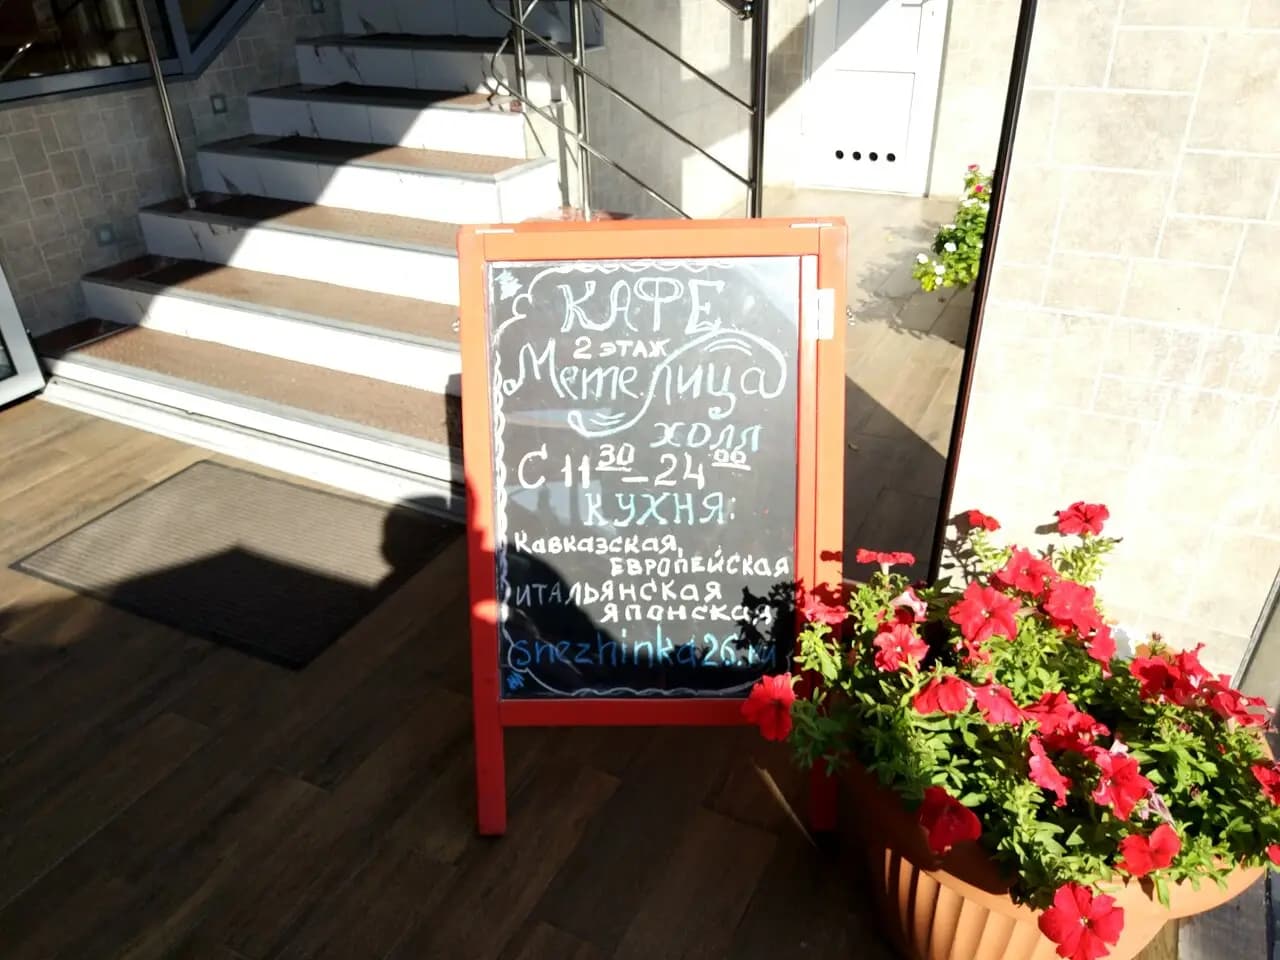 КАФЕ
2 ЭТАЖ
Метелица
холл
С 11 30 – 24 00
КУХНЯ:
Кавказская,
ЕВРОПЕЙСКАЯ
ИТАЛЬЯНСКАЯ
ЯПОНСКАЯ
snezhinka26.ru